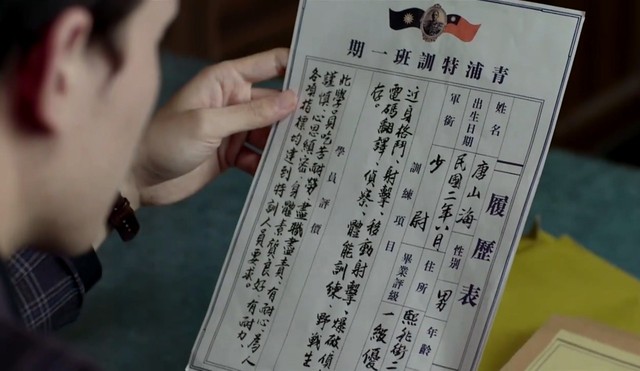 青浦特訓班一期
履歷表
姓名 唐山海 性別 男 年齡
出生日期 民國二年八月 住所 街二
軍銜 少尉 畢業評級 一級優
訓練項目
近身格鬥、射擊、移動射擊、爆破偵
電碼翻譯、偵察、體能訓練、野戰生
存。
學員評價
此學員吃苦耐勞、盡職盡責、有耐心、為人
謹慎、心思慎密、身體素質良好、有耐力、
各項指標均達到特訓人員要求。